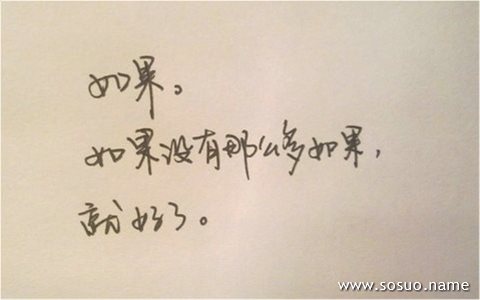 如果。
如果没有那么多如果，
就好了。
www.sosuo.name